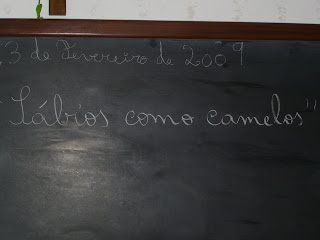 3 de Fevereiro de 2009
"Lábios como camelos"